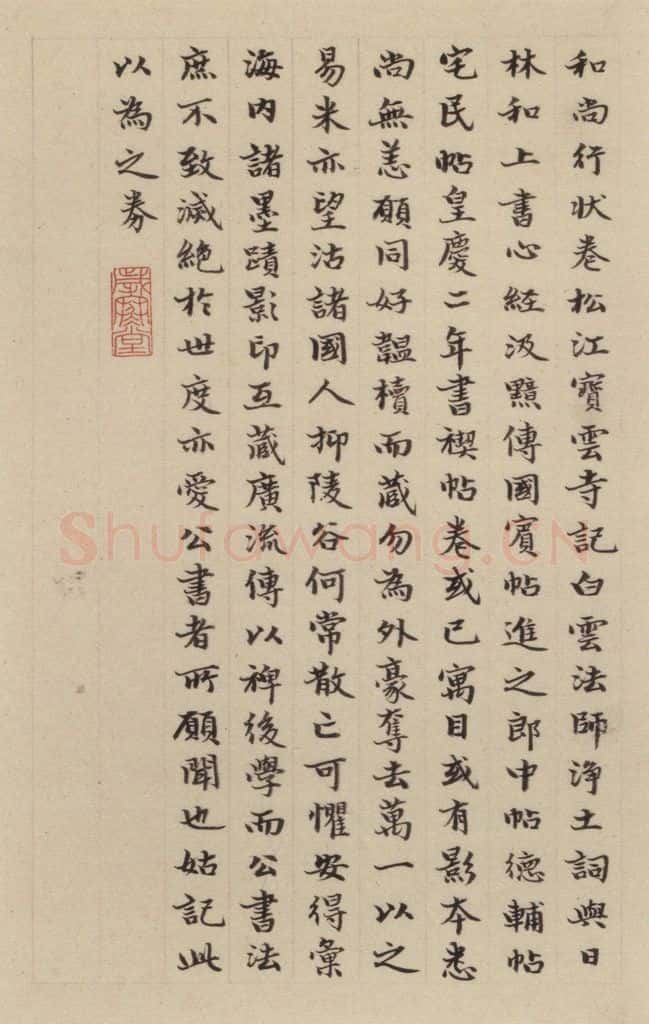 和尚行狀卷松江寶雲寺記白雲法師淨土詞與日
林和上書心經汲黯傳國賓帖進之郎中帖德輔帖
宅民帖皇慶二年書禊帖卷或已寓目或有影本悉
尚無恙願同好韞櫝而藏勿為外豪奪去萬一以之
易米亦望沽諸國人抑陵谷何常散亡可懼安得彙
海内諸墨蹟影印互藏廣流傳以裨後學而公書法
庶不致滅絶於世度亦愛公書者所願聞也姑記此
以為之券
Shufawang.CN